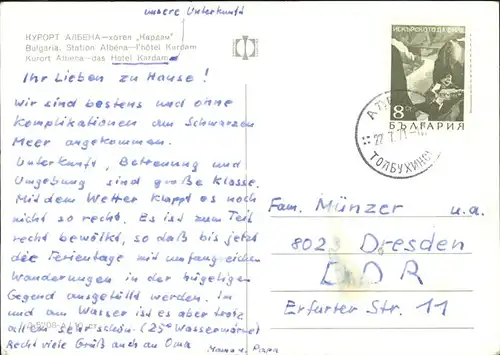 unsere Unterkunft
КУРОРТ АЛБЕНА—хотел „Кардам"
Bulgaria. Station Albena—l'hôtel Kardam
Kurort Albena-das Hotel Kardam
Ihr Lieben zu Hause!
Wir sind bestens und ohne
Komplikationen am Schwarzen
Meer angekommen.
Unterkunft, Betreuung und
Umgebung sind große Klasse.
Mit dem Wetter klappt es noch
nicht so recht. Es ist zum Teil
recht bewölkt, so daß bis jetzt
die Ferientage mit umfangreichen
Wanderungen in der hügeligen
Gegend ausgefüllt werden. Im
und am Wasser ist es aber trotz
allem sehr schön. (25° Wasserwärme)
Recht viele Grüße auch an Oma
Mama u. Papa
ИСКЪРСКОТО ДЕФИЛЕ
8 СТ
БЪЛГАРИЯ
ТОЛБУХИНС
Fam. Münzer u.a.
8023 Dresden
DDR
Erfurter Str. 11